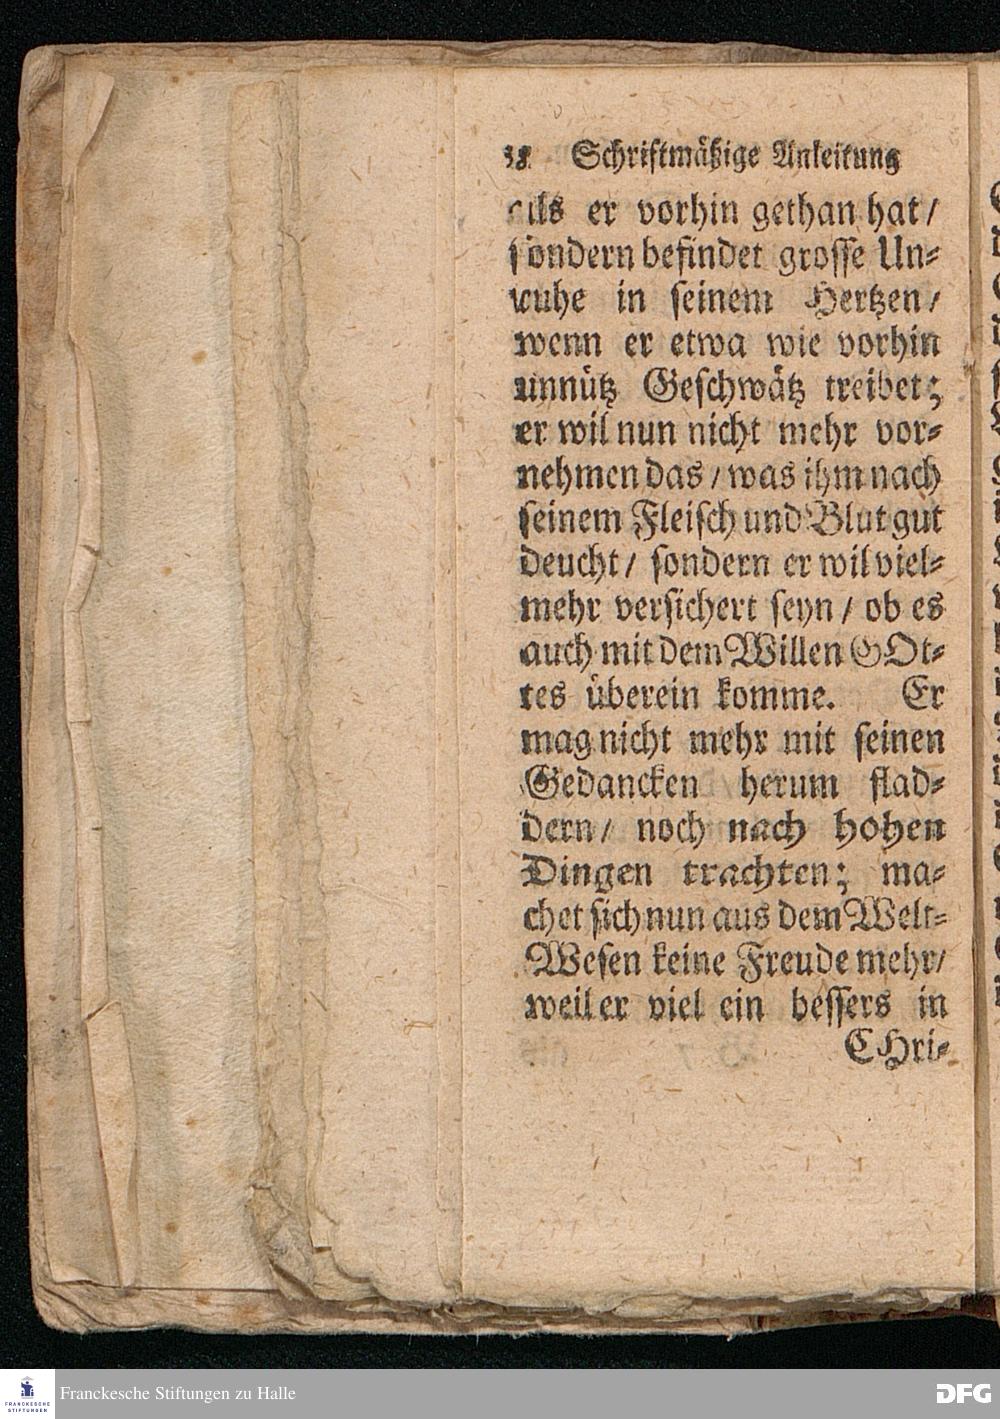 38 Schriftmäßige Anleitung
als er vorhin gethan hat/
sondern befindet grosse Un⸗
ruhe in seinem Hertzen/
wenn er etwa wie vorhin
unnütz Geschwätz treibet;
er wil nun nicht mehr vor⸗
nehmen das/ was ihm nach
seinem Fleisch und Blut gut
deucht/ sondern er wil viel⸗
mehr versichert seyn/ ob es
auch mit dem Willen GOt⸗
tes überein komme. Er
mag nicht mehr mit seinen
Gedancken herum flad⸗
dern/ noch nach hohen
Dingen trachten; ma⸗
chet sich nun aus dem Welt⸗
Wesen keine Freude mehr/
weil er viel ein bessers in
CHri⸗
FRANCKESCHE
STIFTUNGEN
Franckesche Stiftungen zu Halle
DFG